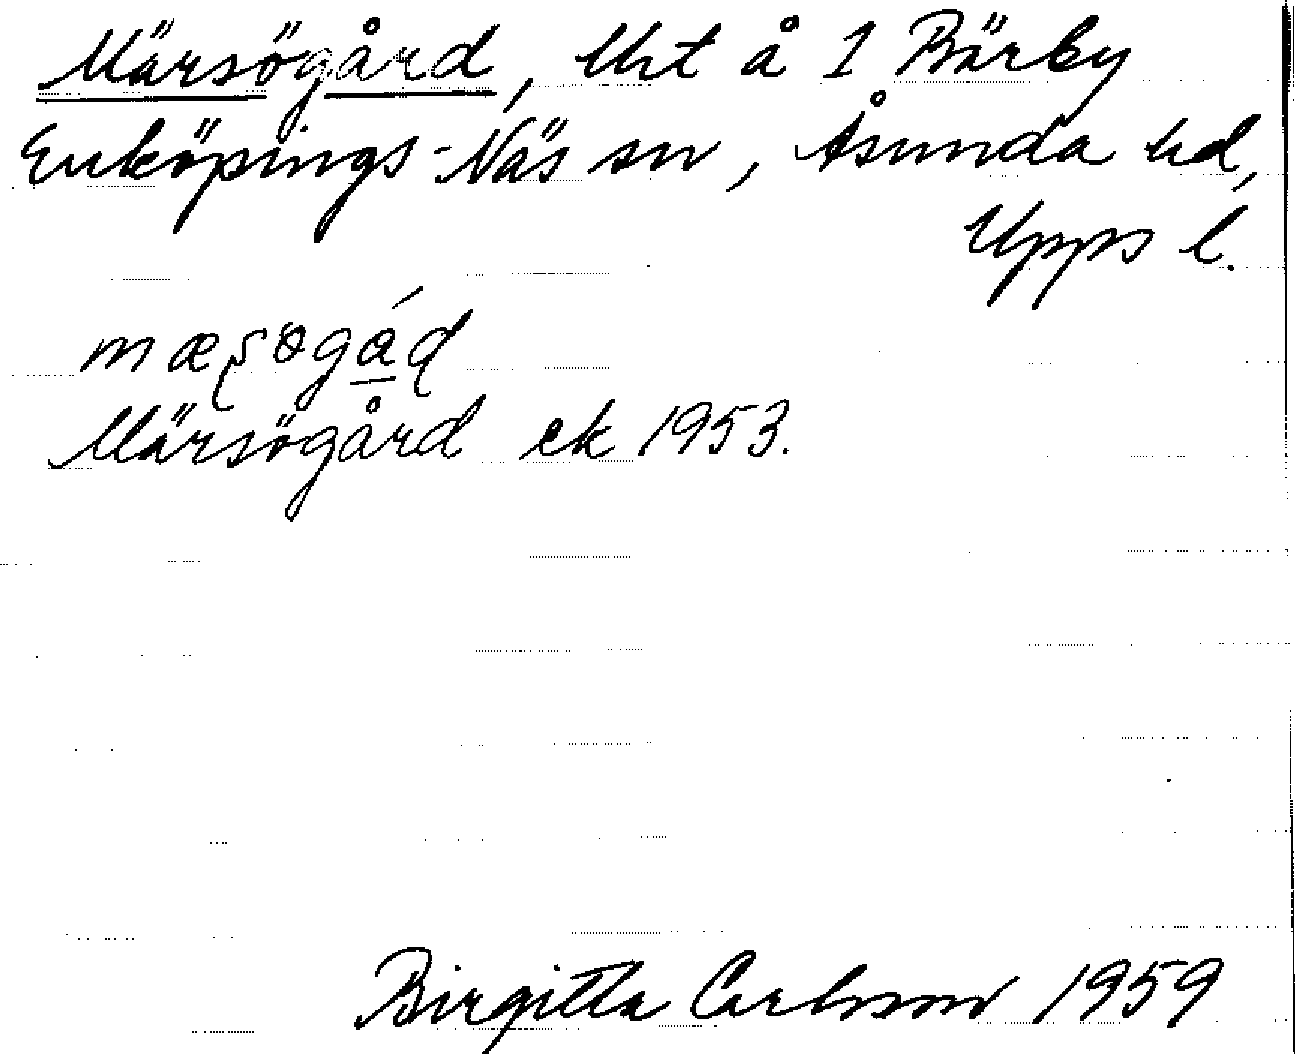 Märsögård, Uht å 1 Bärby
Enköpings-Näs sn, Åsunda hd,
Upps l.
Märsögård ek 1953.
Birgitta Carlsson 1959